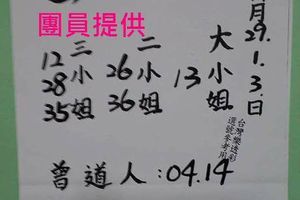 團員提供
月
29.
1.
3.
日
大小姐
13
二小姐
26
36
三小姐
12
28
35
台灣樂透彩
選號參考用
曾道人:04.14